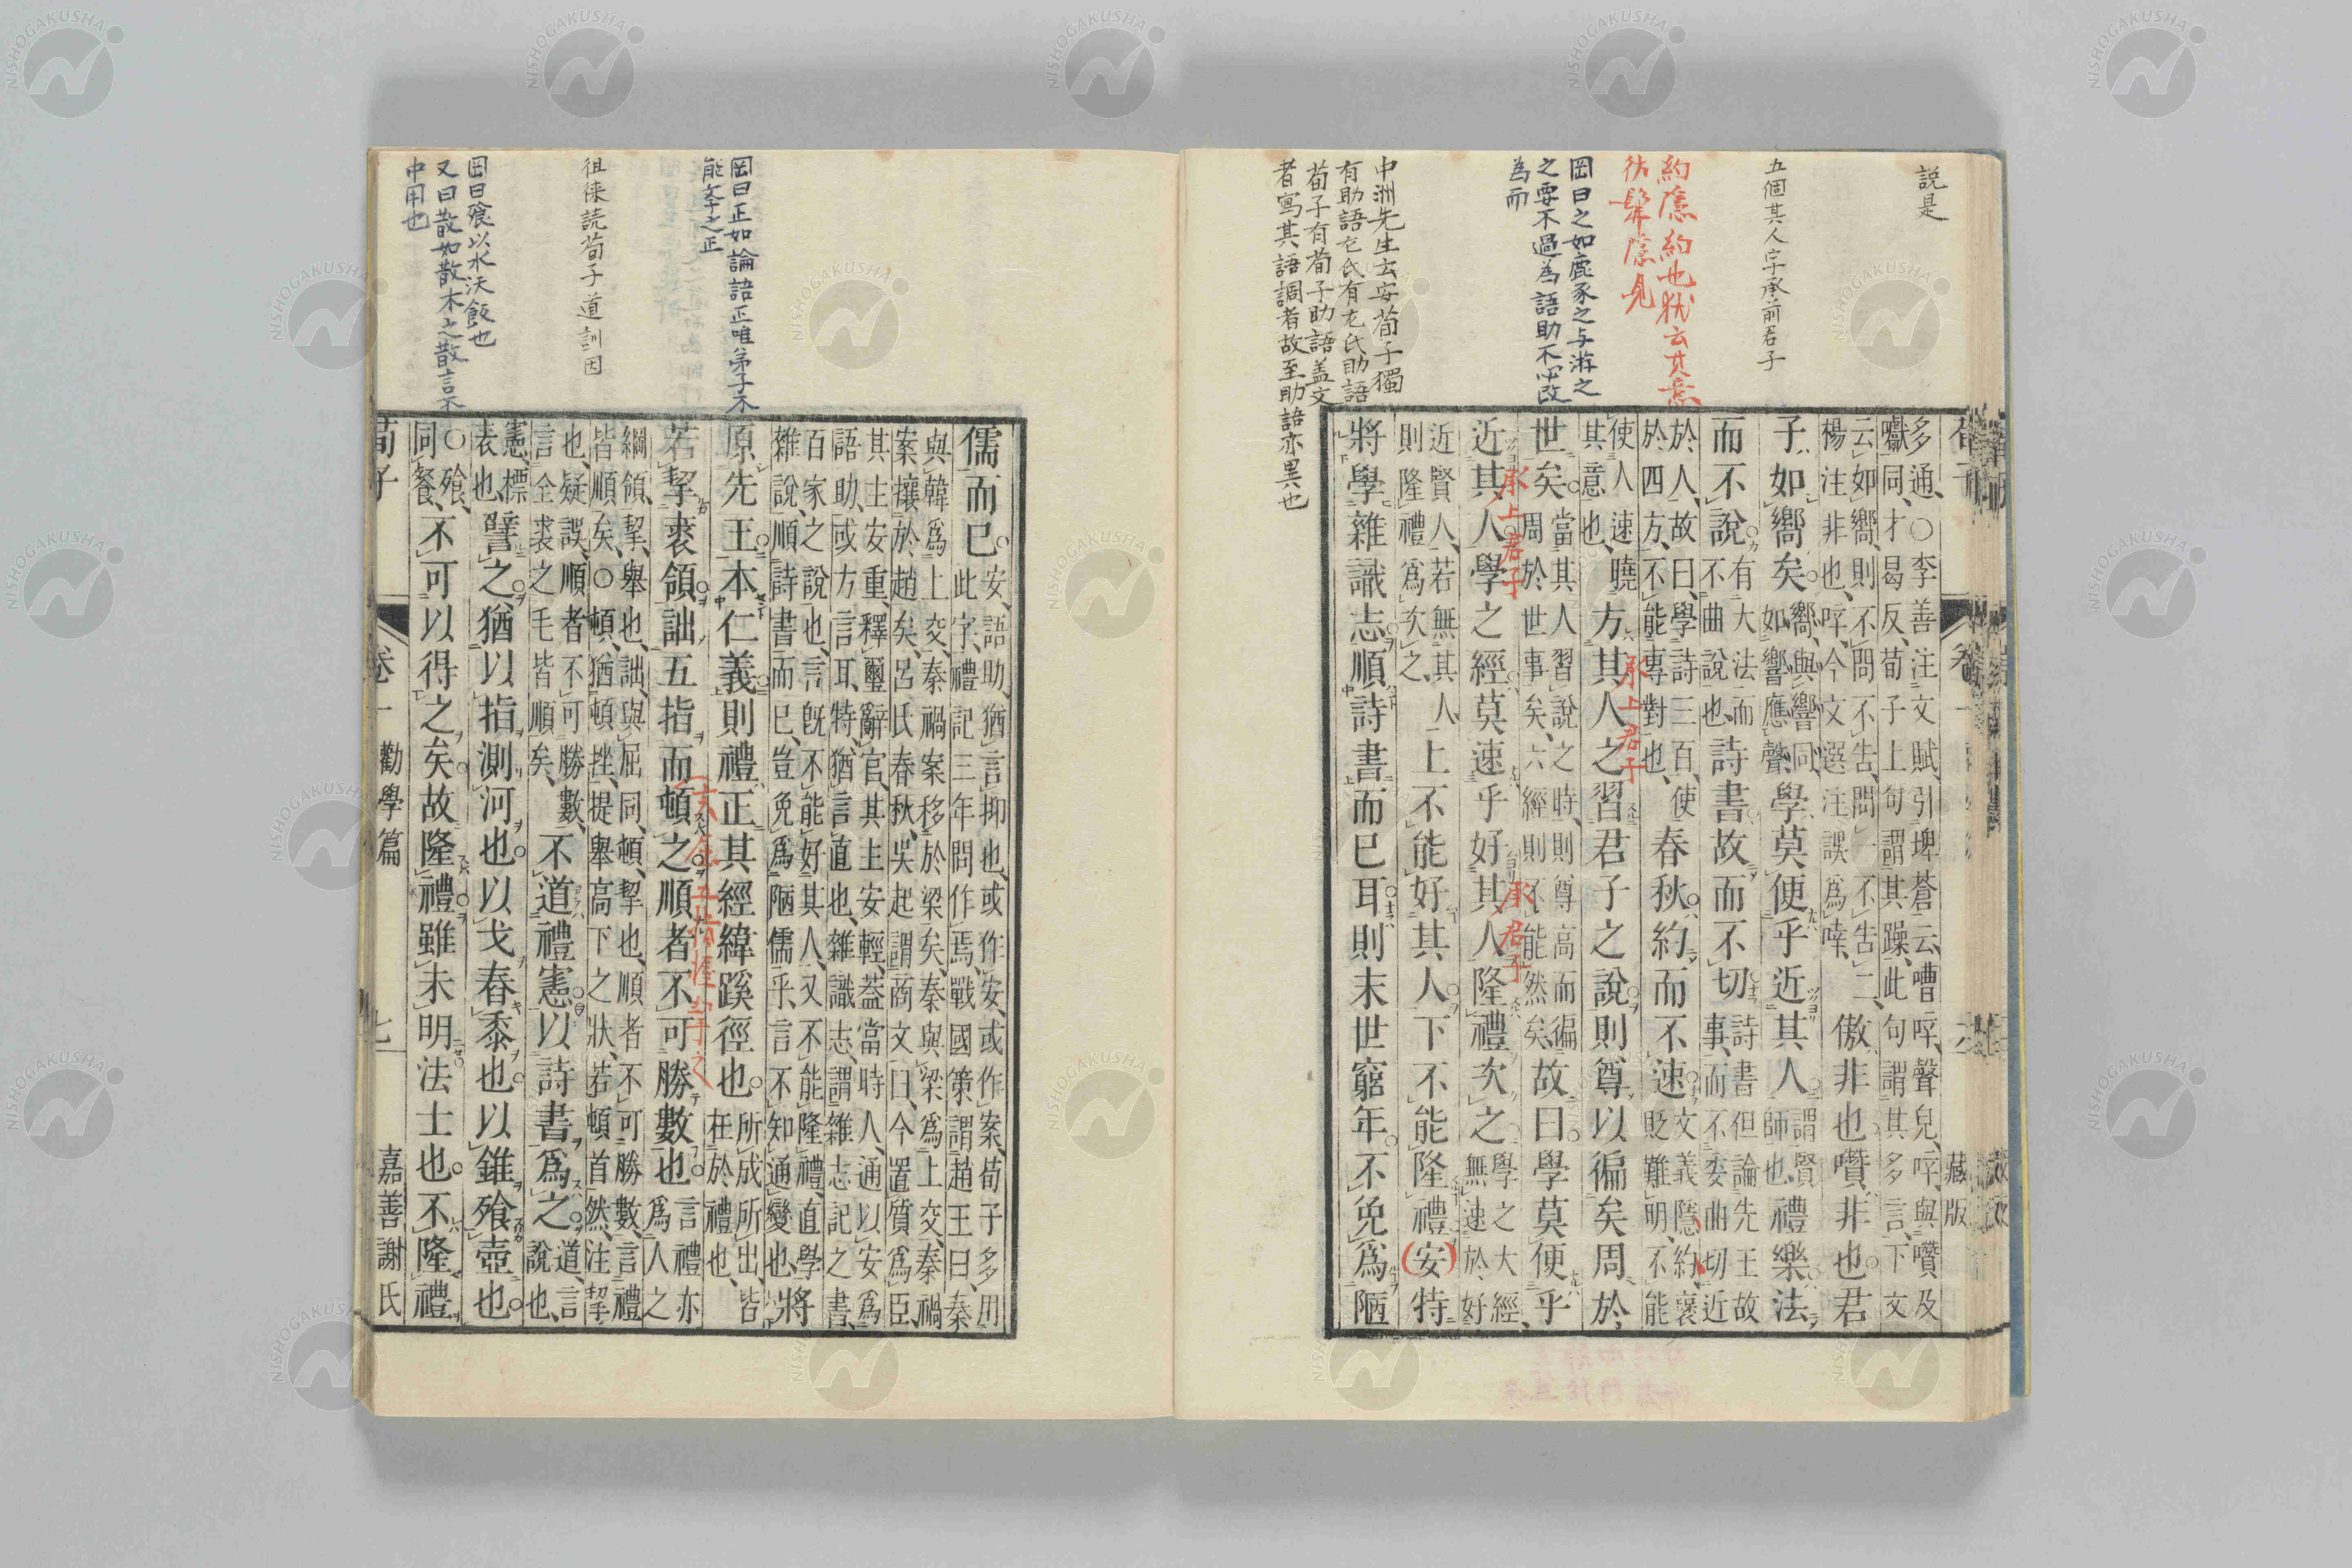 説是
五個其人字承前君子
約隱約也猶云其意
彷髴隱見
岡曰之如鹿豕之与游之
之要不過為語助不必改
為而
中洲先生云安荀子獨
有助語左氏有左氏助語
荀子有荀子助語盖文
者寫其語調者故至助語亦異也
藏版
多通、○李善注文賦引埤蒼云、嘈啐、聲皃、啐與囋及
囐同、才曷反、荀子上句謂其躁、此句謂其多言、下文
云如嚮、則不問不吿、問一不吿二、傲非也囋非也君
楊注非也、啐今文選注誤為啈、
子如嚮矣嚮、與響同、如響應聲、學莫便乎近其人謂賢師也、禮樂法
而不說有大法而不曲說也、詩書故而不切詩書但論先王故事、而不委曲切近
於人、故曰、學詩三百、使於四方、不能專對也、春秋約而不速文義隱約、襃貶難明、不能
使人速曉其意也、方其人之習君子之說則尊以徧矣周於
世矣當其人習說之時、則尊高而徧周於世事矣、六經則不能然矣、故曰學莫便乎
近其人學之經莫速乎好其人隆禮次之學之大經、無速於好
近賢人、若無其人、則隆禮為次之、上不能好其人下不能隆禮安特
將學雜識志順詩書而已耳則末世窮年不免為陋
承上君子
承上君子
承君子
儒而已安、語助、猶言抑也、或作安、或作案、荀子多用此字、禮記三年問作焉、戰國策謂趙王曰、秦
與韓為上交、秦禍案移於梁矣、秦與梁為上交、秦禍
案攘於趙矣、呂氏春秋、吳起謂商文曰、今置質為臣、
其主安重、釋璽辭官、其主安輕、蓋當時人、通以安為
語助、或方言耳、特、猶言直也、雜識志、謂雜志記之書、
百家之說也、言旣不能好其人、又不能隆禮、直學
雜說、順詩書而已、豈免為陋儒乎、言不知通變也、將
原先王本仁義則禮正其經緯蹊徑也所成所出、皆在於禮也、
若挈裘領詘五指而頓之順者不可勝數也言禮亦為人之
綱領、挈、舉也、詘、與屈同、頓、挈也、順者不可勝數、言禮
皆順矣、○頓、猶頓挫、提舉高下之狀、若頓首然、注挈
也、疑誤、順者不可勝數、不道禮憲以詩書為之道、言
言全裘之毛皆順矣、說也、
憲、標表也、譬之猶以指測河也以戈舂黍也以錐飱壺也
○飱、同餐、不可以得之矣故隆禮雖未明法士也不隆禮
荀子
卷一
勸學篇
七
嘉善謝氏
岡曰正如論語正唯弟子不
能学之正
徂徠読荀子道訓因
岡曰飱以水沃飯也
又曰散如散木之散言不
中用也